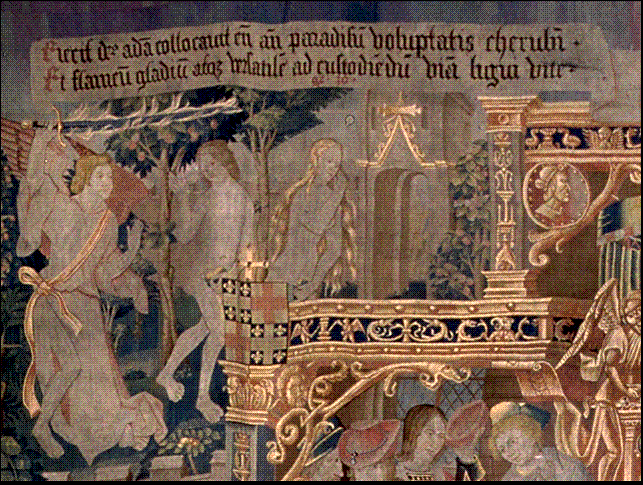 Eiecit ds̃ adã collocauit eũ añ paradisũ voluptatis cherubĩ ·
Et flameũ gladiũ atqꝫ v̾satilẽ ad custodiẽdũ viã ligni vite ·